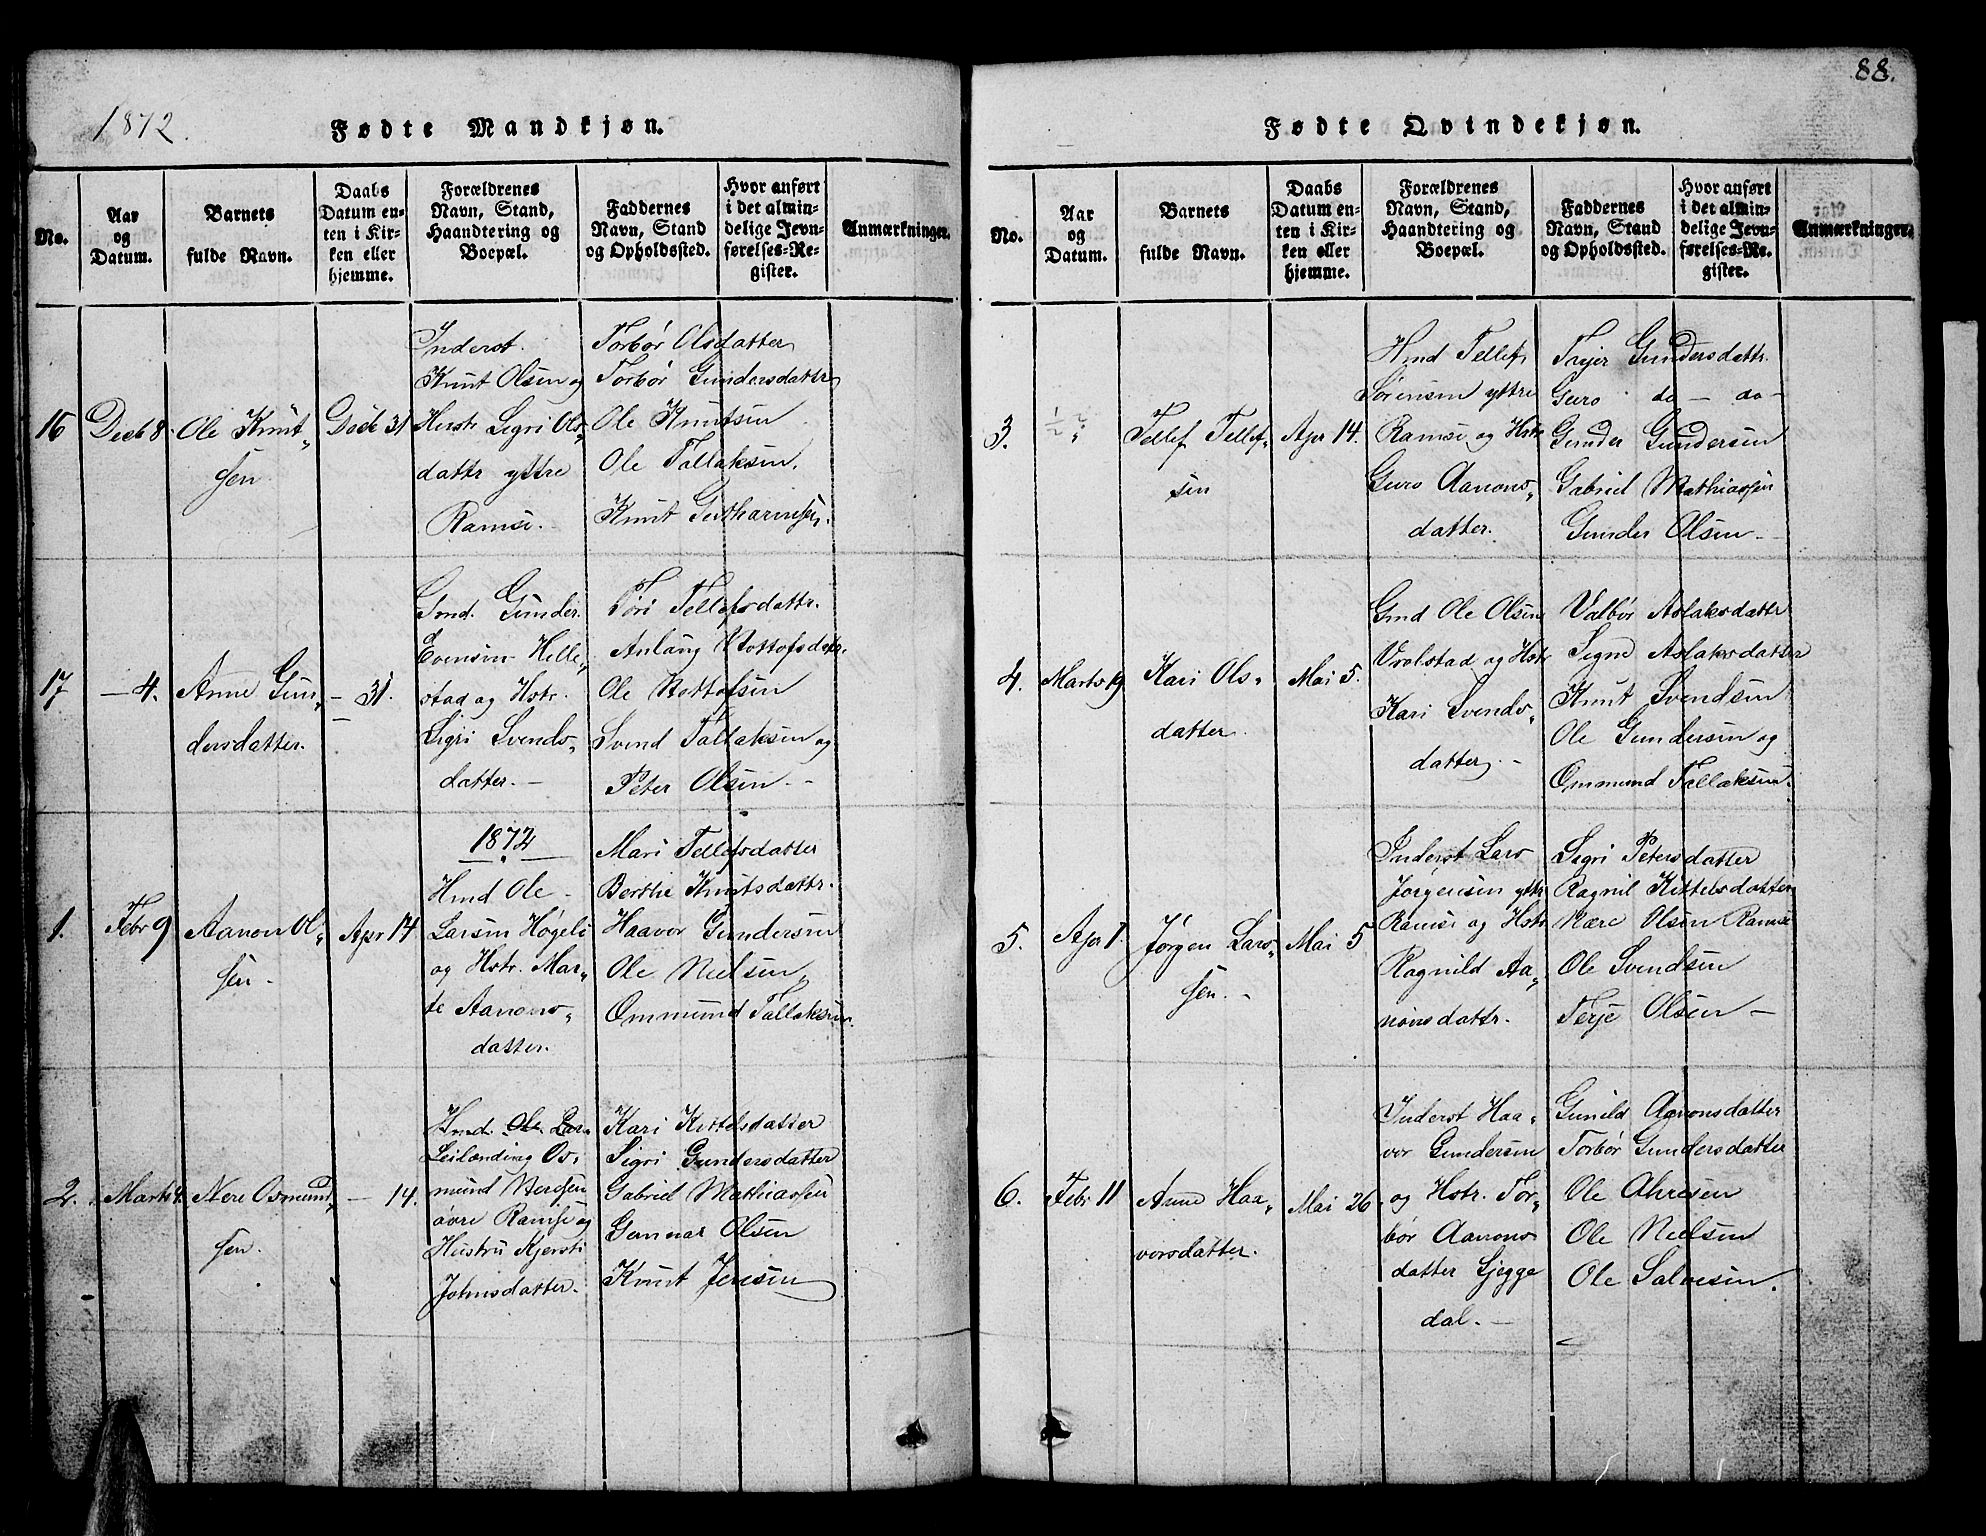 1872.
Fødte Mandkjøn.
No.
Aar
og
Datum.
Barnets
fulde Navn.
Daabs
Datum en-
ten i Kir-
ken eller
hjemme.
Forældrenes
Navn, Stand,
Haandtering og
Boepæl.
Faddernes
Navn, Stand
og Opholdssted.
Hvor anført
i det almin-
delige Jevn-
førelses-Re-
gister.
Anmærkninger.
16
Decb 8.
Ole Knut„
sen
Decb 31
Inderst.
Knut Olsen og
Hustr. Sigri Ols„
dattr yttre
Ramse.
Torbør Olsdatter
Torbør Gundersdattr
Ole Knutsen
Ole Tallaksen.
Knut
17
— 4.
Anne Gun„
dersdatter.
— 31.
Gmd. Gunder
Evensen Helle„
stad og Hstr.
Sigri Svends„
datter. —
Tøri Tellefsdattr.
Anlaug
Ole
Svend Tallaksen og
Peter Olsen —
1872
1.
Febr 9
Aanon Ol„
sen.
Apr 14
Hmd Ole
Larsen Høgeli
og Hstr. Mar„
te Aanons„
datter.
Mari Tellefsdatter
Berthe Knutsdattr.
Haavor Gundersen
Ole Nielsen,
Ommund Tallaksen.
2.
Marts 4.
Nere Osmund„
sen.
— 14.
Hmd. Ole Lar
Leilænding Os„
mund Nerssen
øvre Ramse og
Hustru Kjersti
Johnsdatter.
Kari Kittelsdatter
Sigri Gundersdatter
Gabriel Mathiassen
Gunnar Olsen
Knut Jensen
88.
Fødte Qvindekjøn.
No.
Aar
og
Datum.
Barnets
fulde Navn.
Daabs
Datum en-
ten i Kir-
ken eller
hjemme.
Forældrenes
Navn, Stand,
Haandtering og
Boepæl.
Faddernes
Navn, Stand
og Opholdssted.
Hvor anført
i det almin-
delige Jevn-
førelses-Re-
gister.
Anmærkninger.
3.
Tellef Tellef„
sen
Apr 14.
Hmd Tellef
Sørensen yttre
Ramse og Hstr
Guro Aanons„
datter.
Tarjer Gundersdattr.
Guro do — do —
Gunder Gundersen
Gabriel Mathiassen
Gunder Olsen —
4.
Marts 19
Kari Ols„
datter.
Mai 5.
Gmd Ole Olsen
Vralstad og Hstr
Kari Svends„
datter. —
Valbør Aslaksdattr
Signe Aslaksdatter
Knut Svendsen
Ole Gundersen og
Ommund Tallaksen.
5.
Apr 1.
Jørgen Lars„
sen. —
Mai 5
Inderst Lars
Jørgensen yttr
Ramse og Hstr
Ragnild Aa„
nonsdattr.
Sigri Petersdatter
Ragnil Kittelsdatter
Nære Olsen Ramse
Ole Svendsen
Terje Olsen —
6.
Febr 11
Anne Haa„
vorsdatter.
Mai 26
Inderst Haa„
vor Gundersen
og Hstr. Tor„
bør Aanons
datter Sjegge
dal. —
Gunild Aanonsdatter
Torbør Gundersdatter
Ole Ahresen
Ole Nielsen
Ole Salvesen.